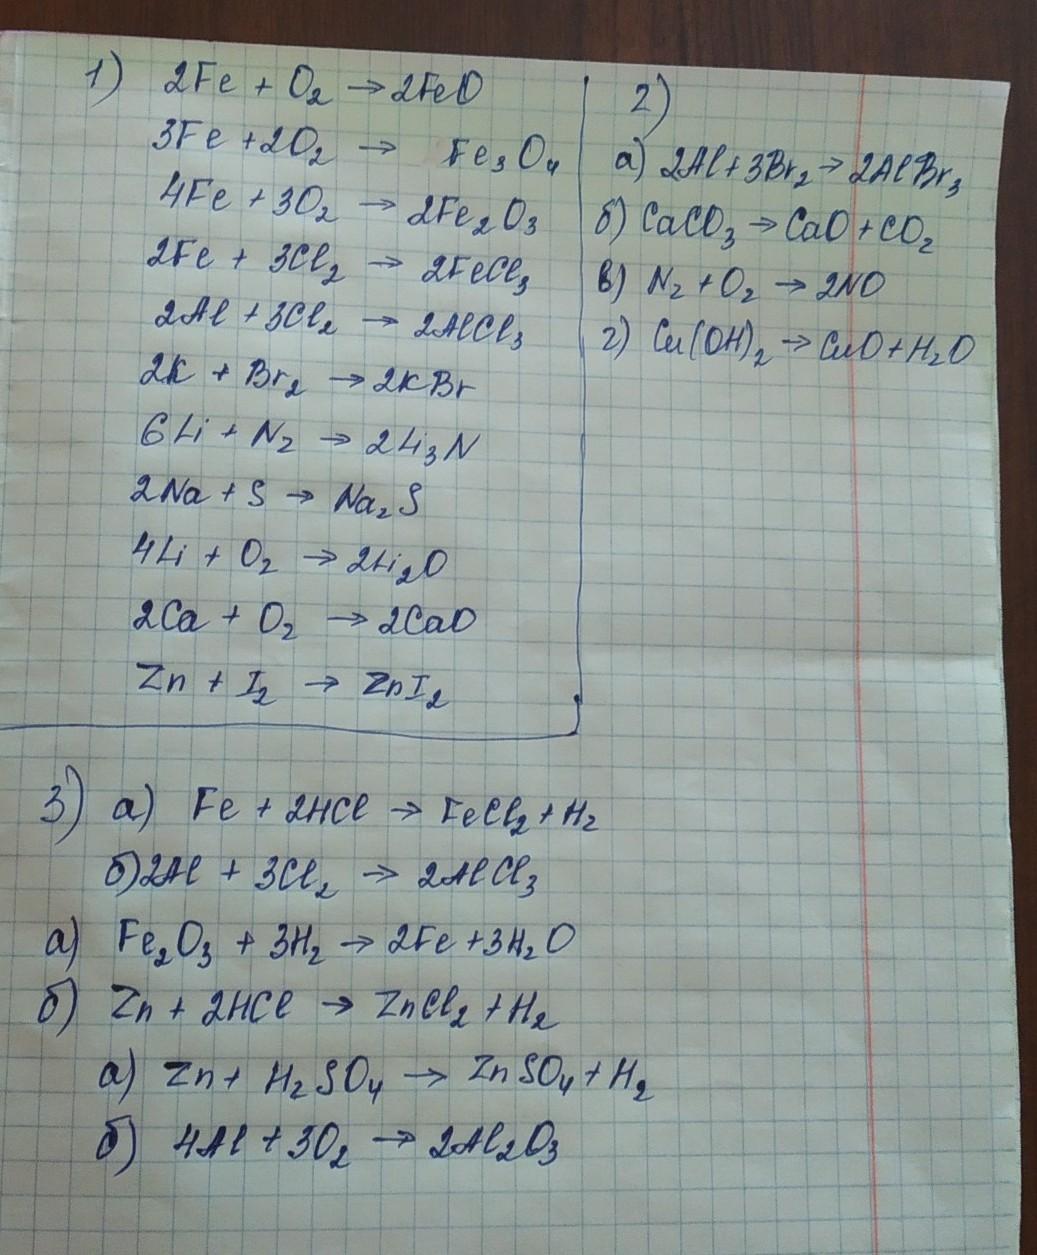 1) 2Fe + O₂ → 2FeO
3Fe + 2O₂ → Fe₃O₄
4Fe + 3O₂ → 2Fe₂O₃
2Fe + 3Cl₂ → 2FeCl₃
2Al + 3Cl₂ → 2AlCl₃
2K + Br₂ → 2KBr
6Li + N₂ → 2Li₃N
2Na + S → Na₂S
4Li + O₂ → 2Li₂O
2Ca + O₂ → 2CaO
Zn + I₂ → ZnI₂
2)
а) 2Al + 3Br₂ → 2AlBr₃
б) CaCO₃ → CaO + CO₂
в) N₂ + O₂ → 2NO
г) Cu(OH)₂ → CuO + H₂O
3) а) Fe + 2HCl → FeCl₂ + H₂
б) 2Al + 3Cl₂ → 2AlCl₃
а) Fe₂O₃ + 3H₂ → 2Fe + 3H₂O
б) Zn + 2HCl → ZnCl₂ + H₂
а) Zn + H₂SO₄ → ZnSO₄ + H₂
б) 4Al + 3O₂ → 2Al₂O₃